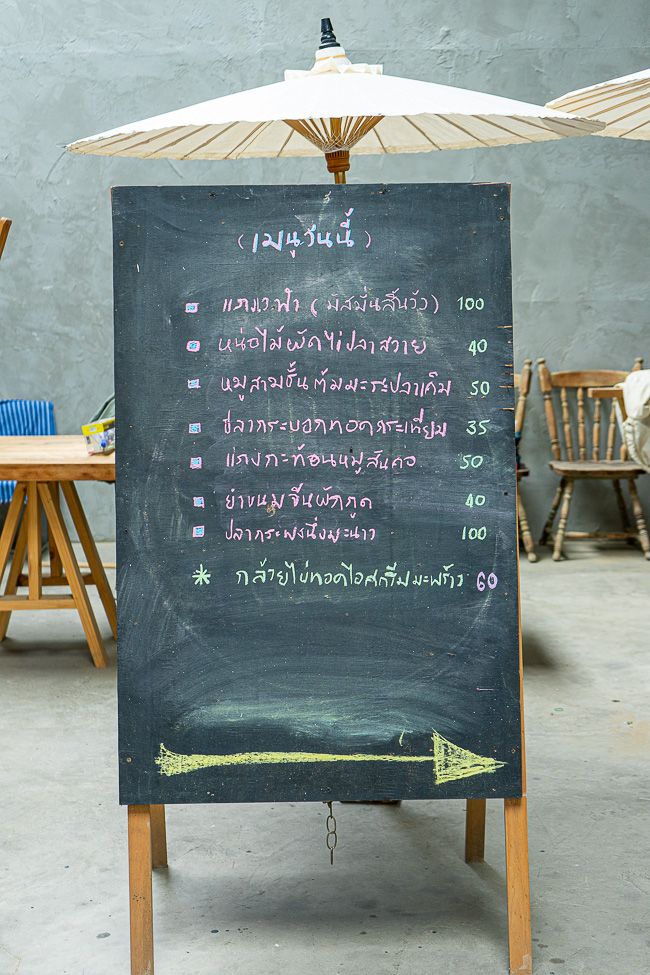 (เมนูวันนี้)
(มัสมั่นลิ้นวัว) 100
หน่อไม้ผัดไข่ปลาสวาย 40
หมูสามชั้นต้มมะระปลาเค็ม 50
ปลากระบอกทอดกระเทียม 35
แกงกะท้อนหมูสันคอ 50
ยำขนมจีนผักกูด 40
ปลากระพงนึ่งมะนาว 100
* กล้วยไข่ทอดไอศกรีมมะพร้าว 60